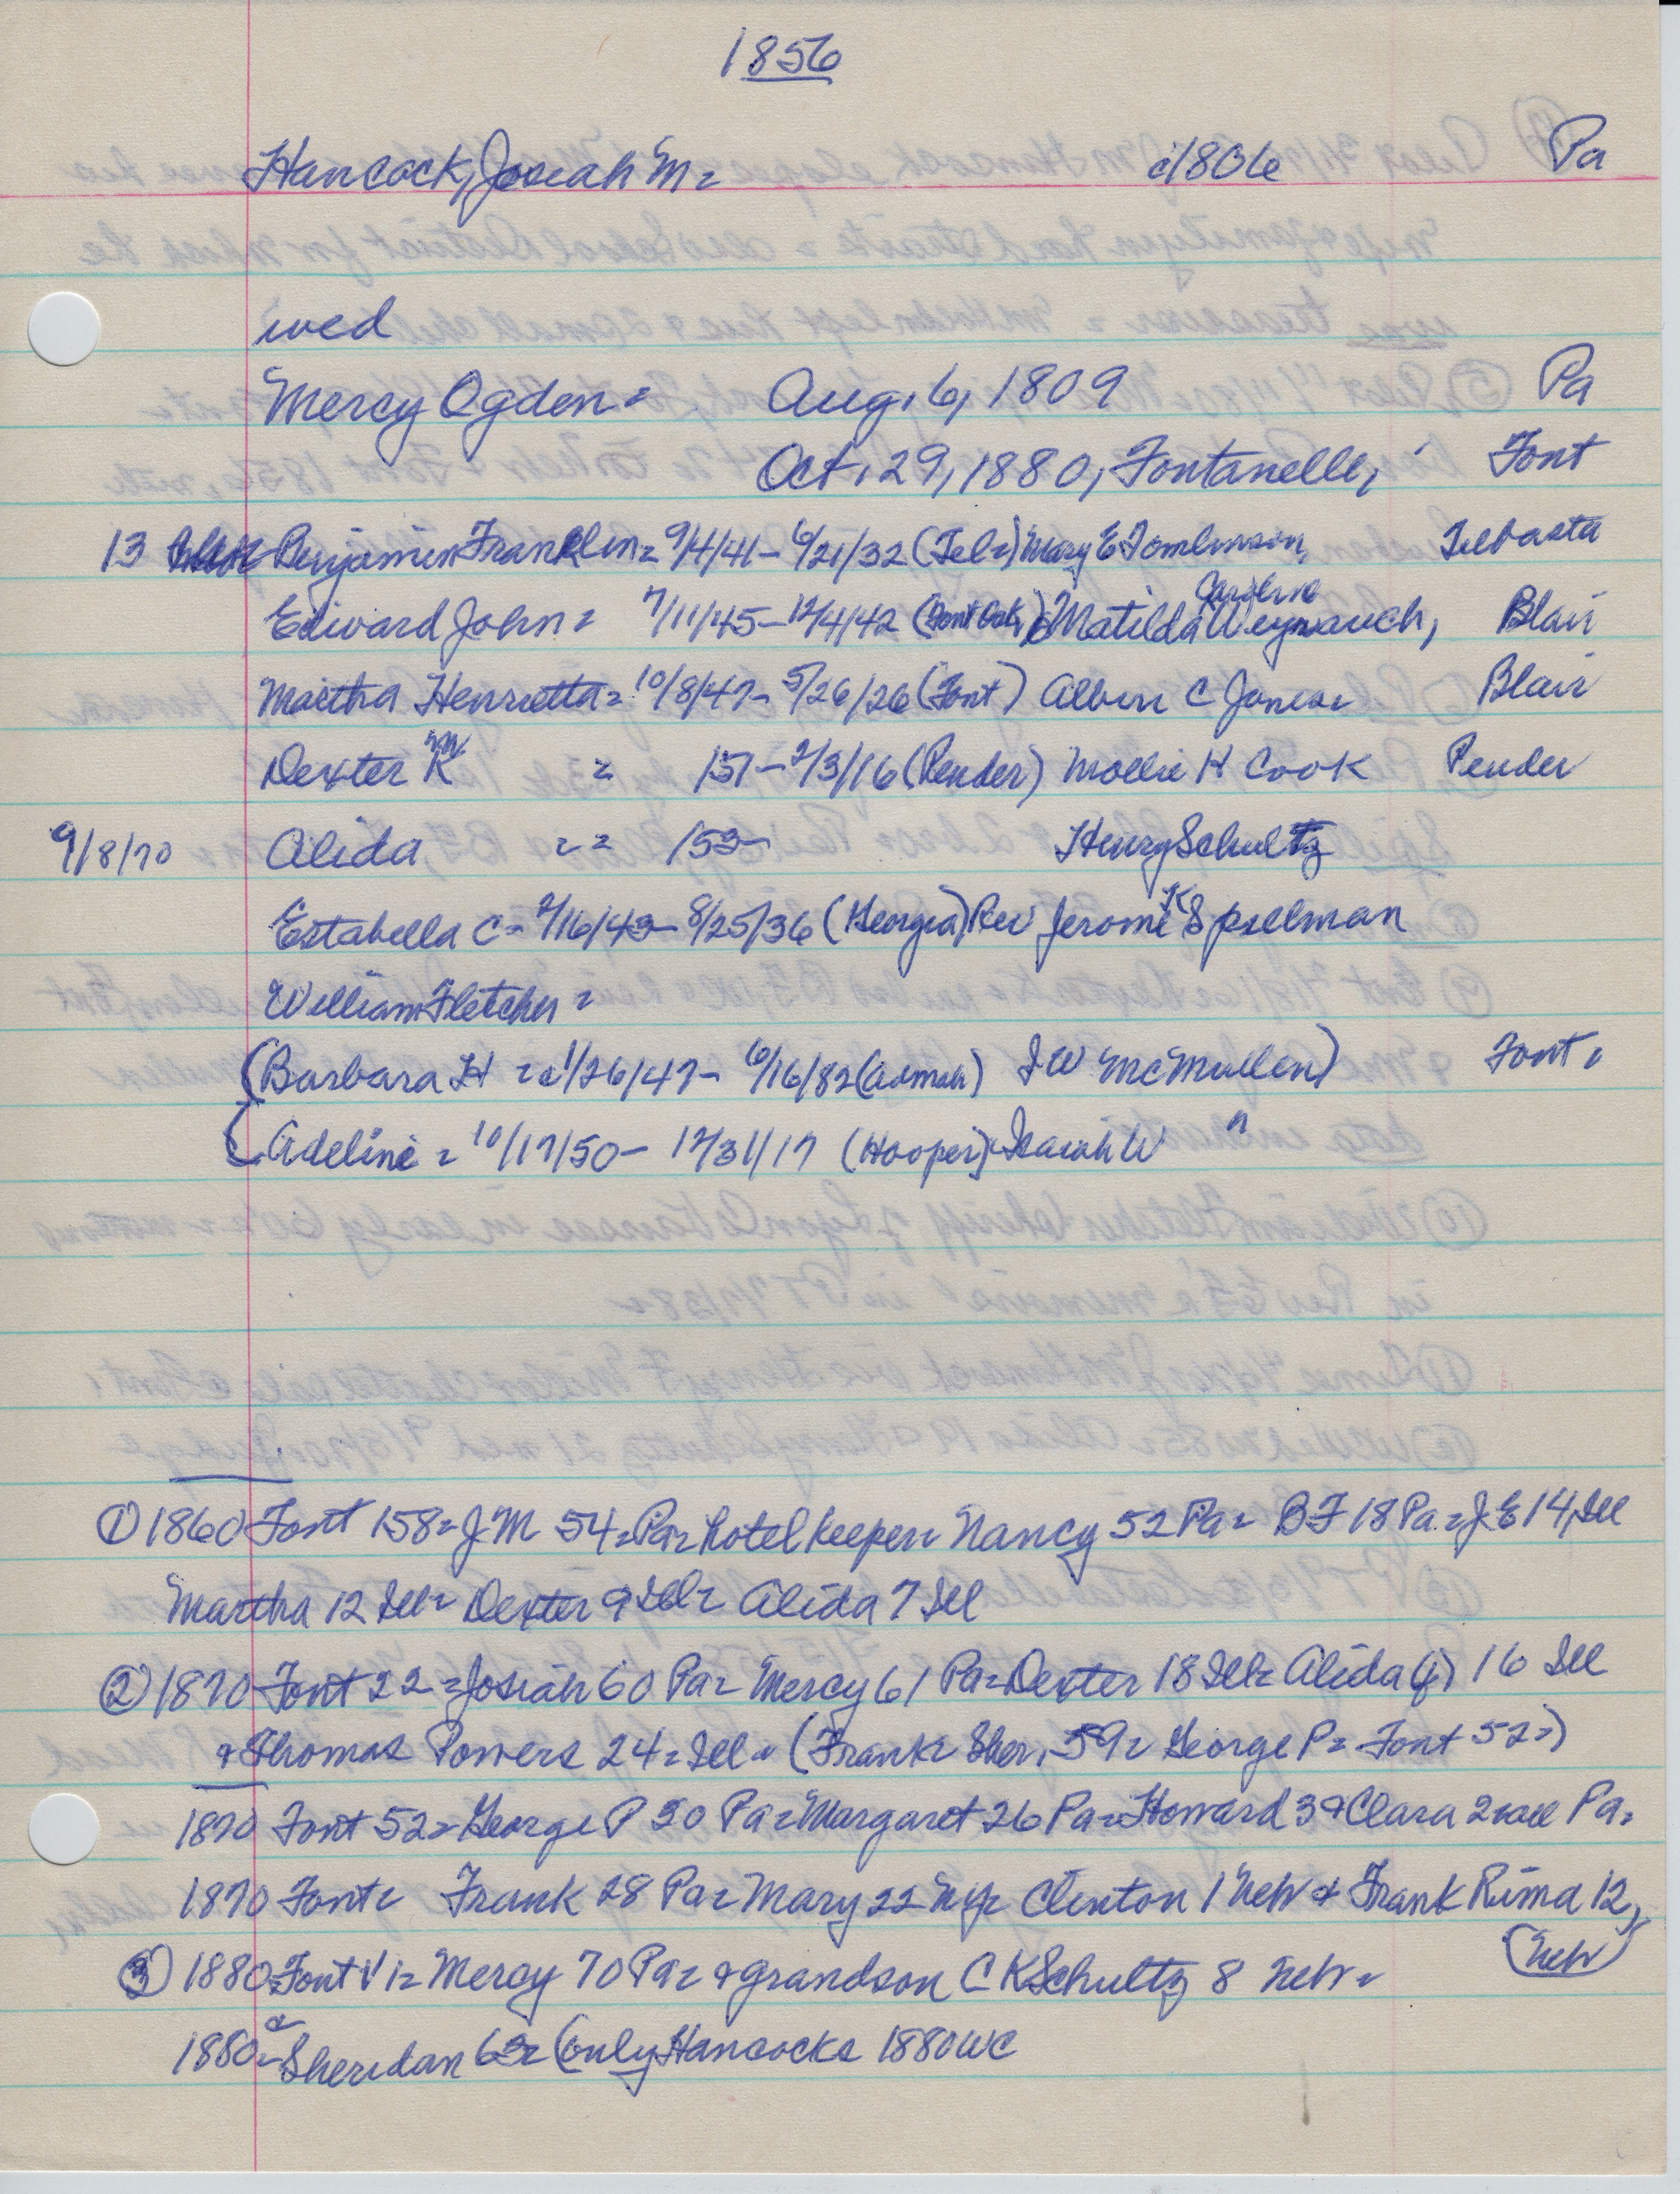 1856
Hancock, Josiah M = c1806 Pa
wed
Mercy Ogden = Aug. 6, 1809 Pa
Oct. 29, 1880, Fontanelle, Font
13 Benjamin Franklin = 9/4/41 - 6/21/32 (Tek=) Mary E Tomlinson, Tekbasta
Caroline
Edward John = 7/11/45 - 12/4/42 Matilda Weynauch, Blair
Martha Henrietta = 10/8/47 - 5/26/26 (Font) Albin C Jones = Blair
Dexter K M = /51 - 2/3/16 (Pender) Mollie H Cook Pender
9/8/70 Alida = = /53 - Henry Schultz
Estabella C - 2/16/43 - 8/25/36 (Georgia) Rev Jerome K Spillman
William Fletcher =
(Barbara H = 1/26/47 - 6/16/82 I W McMullen) Font =
(Adeline = 10/17/50 - 12/31/17 (Hooper) Isaiah W "
① 1860 Font 158 = J M 54 = Pa = hotel keeper = Nancy 52 Pa = B F 18 Pa = J E 14, Ill
Martha 12 Ill = Dexter 9 Ill = Alida 7 Ill
② 1870 Font 22 = Josiah 60 Pa = Mercy 61 Pa = Dexter 18 Ill = Alida (f) 16 Ill
+ Thomas Powers 24 = Ill = (Frank = Sher, 59 = George P = Font 52 =)
1870 Font 52 = George P 30 Pa = Margaret 26 Pa = Howard 3 + Clara 2 = all Pa =
1870 Font = Frank 28 Pa = Mary 22 NY = Clinton 1 Neb + Frank Rima 12,
(Neb)
③ 1880 = Font V 1 = Mercy 70 Pa = + grandson C K Schultz 8 Neb =
1880 = Sheridan 63 = (only Hancocks 1880 WC